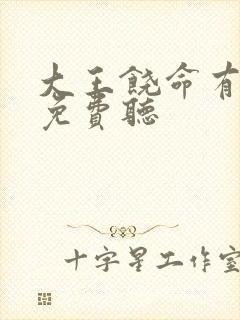 大王饒命有
免費聽
十字星工作室